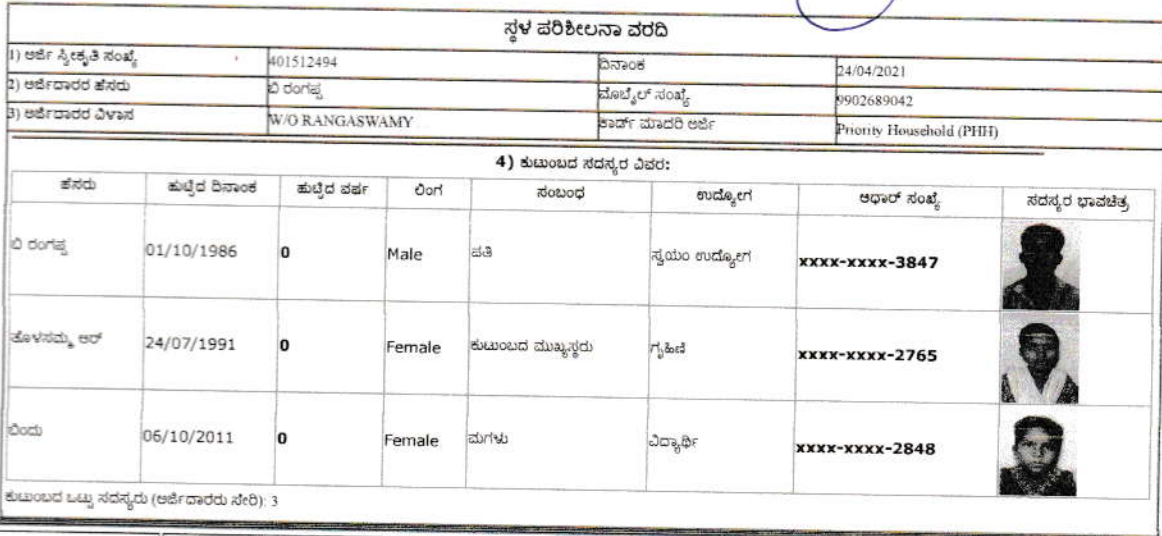 ಸ್ಥಳ ಪರಿಶೀಲನಾ ವರದಿ
1) ಅರ್ಜಿ ಸ್ವೀಕೃತಿ ಸಂಖ್ಯೆ 401512494 ದಿನಾಂಕ 24/04/2021
2) ಅರ್ಜಿದಾರರ ಹೆಸರು ಬಿ ರಂಗಪ್ಪ ಮೊಬೈಲ್ ಸಂಖ್ಯೆ 9902689042
3) ಅರ್ಜಿದಾರರ ವಿಳಾಸ W/O RANGASWAMY ಕಾರ್ಡ್ ಮಾದರಿ ಅರ್ಜಿ Priority Household (PHH)
4) ಕುಟುಂಬದ ಸದಸ್ಯರ ವಿವರ:
ಹೆಸರು ಹುಟ್ಟಿದ ದಿನಾಂಕ ಹುಟ್ಟಿದ ವರ್ಷ ಲಿಂಗ ಸಂಬಂಧ ಉದ್ಯೋಗ ಆಧಾರ್ ಸಂಖ್ಯೆ ಸದಸ್ಯರ ಭಾವಚಿತ್ರ
ಬಿ ರಂಗಪ್ಪ 01/10/1986 0 Male ಪತಿ ಸ್ವಯಂ ಉದ್ಯೋಗ xxxx-xxxx-3847
ತೊಳಸಮ್ಮ ಆರ್ 24/07/1991 0 Female ಕುಟುಂಬದ ಮುಖ್ಯಸ್ಥರು ಗೃಹಿಣಿ xxxx-xxxx-2765
ಬಿಂದು 06/10/2011 0 Female ಮಗಳು ವಿದ್ಯಾರ್ಥಿ xxxx-xxxx-2848
ಕುಟುಂಬದ ಒಟ್ಟು ಸದಸ್ಯರು (ಅರ್ಜಿದಾರರು ಸೇರಿ): 3